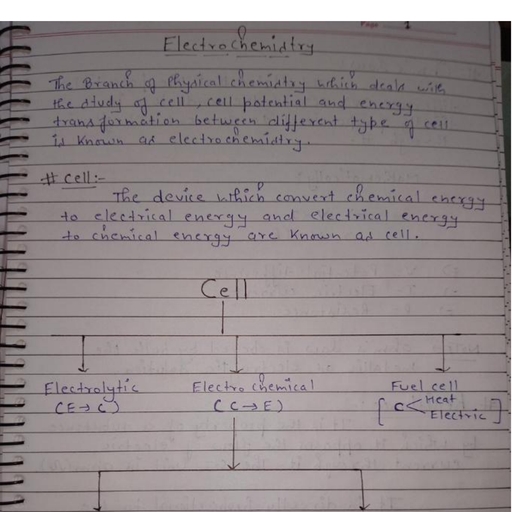 Page 1
Electrochemistry
The Branch of Physical chemistry which deals with
the study of cell, cell potential and energy
transformation between different type of cell
is known as electrochemistry.
# cell:-
The device which convert chemical energy
to electrical energy and electrical energy
to chemical energy are known as cell.
Cell
Electrolytic Electrochemical Fuel cell
(E→C) (C→E) [C< Heat Electric]